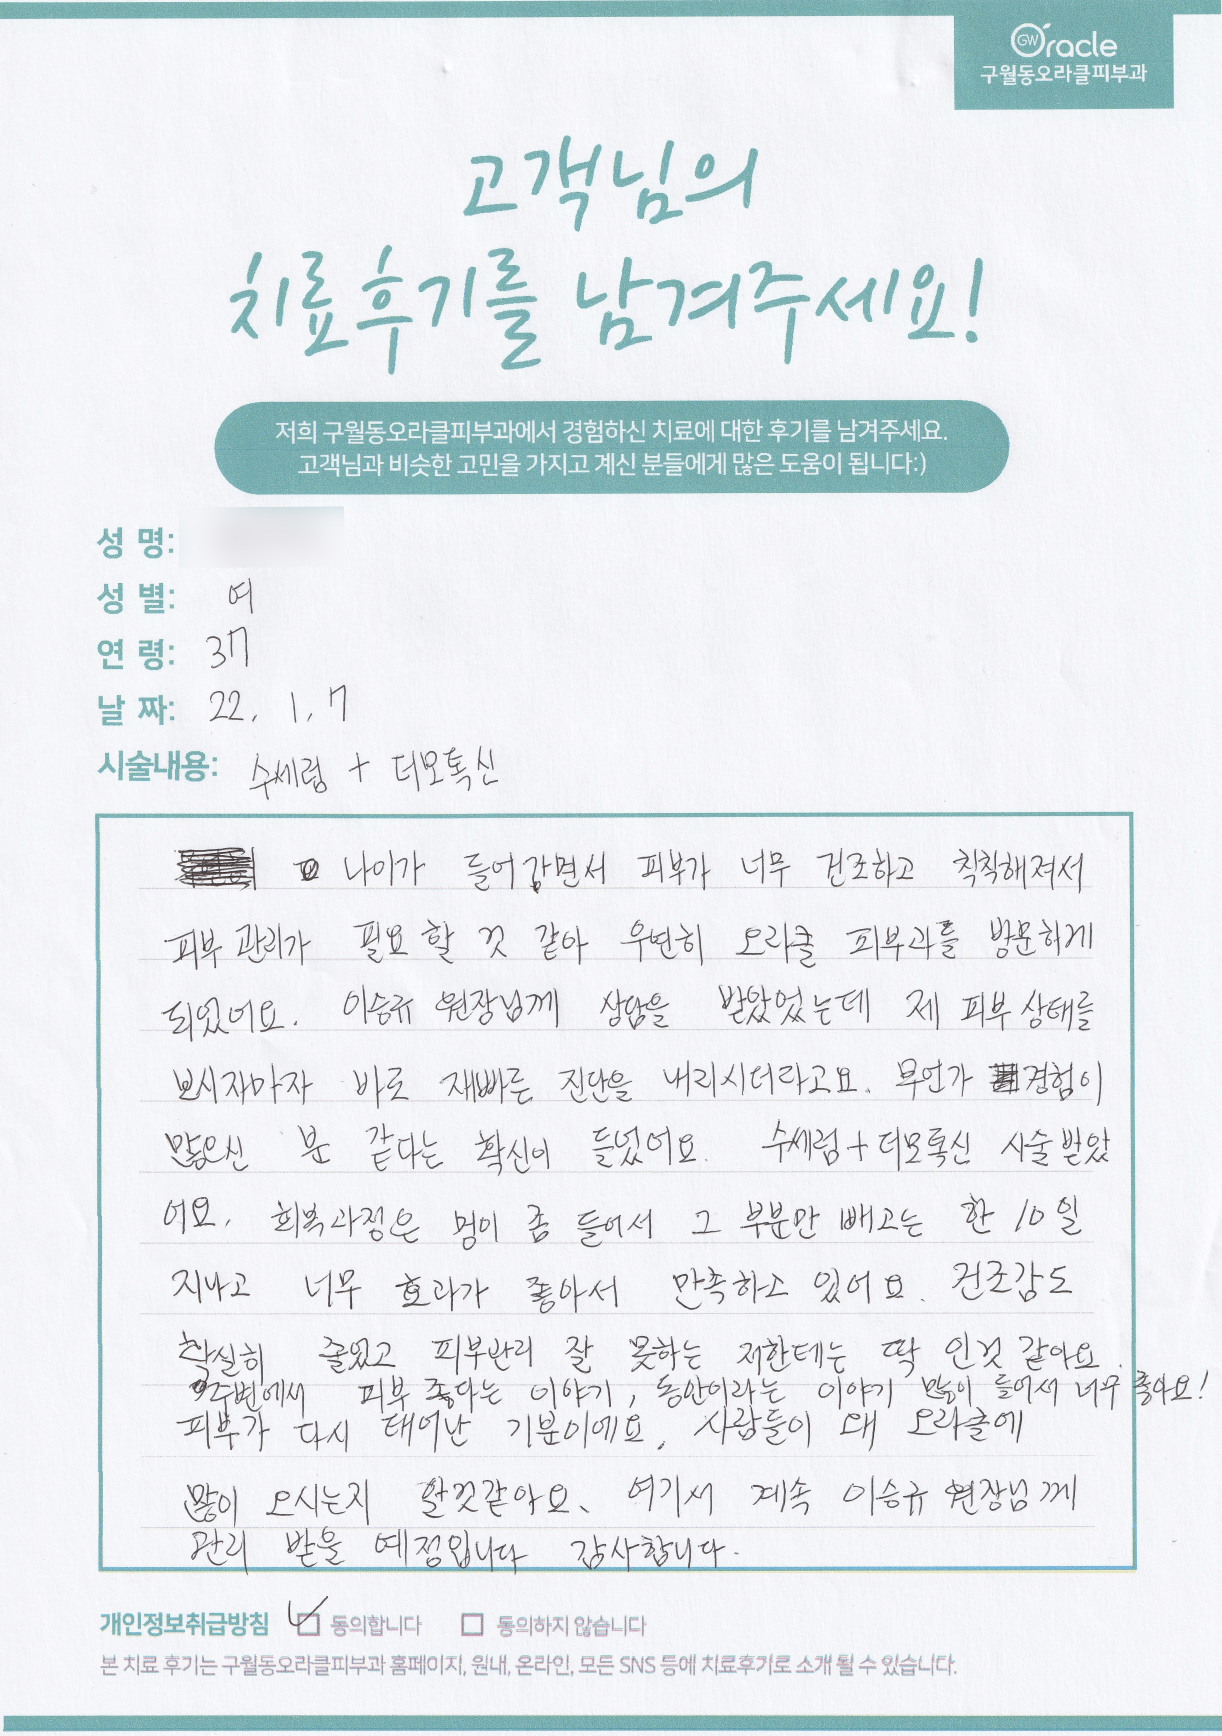 GW Oracle
구월동오라클피부과
고객님의
치료후기를 남겨주세요!
저희 구월동오라클피부과에서 경험하신 치료에 대한 후기를 남겨주세요.
고객님과 비슷한 고민을 가지고 계신 분들에게 많은 도움이 됩니다:)
성 명:
성 별: 여
연 령: 37
날 짜: 22. 1. 7
시술내용: 수세럼 + 더모톡신
나이가 들어감면서 피부가 너무 건조하고 칙칙해져서
피부관리가 필요할 것 같아 우연히 오라클 피부과를 방문하게
되었어요. 이승규 원장님께 상담을 받았었는데 제 피부상태를
보시자마자 바로 재빠른 진단을 내리시더라고요. 무언가 경험이
많으신 분 같다는 확신이 들었어요. 수세럼+더모톡신 시술받았
어요. 회복과정은 멍이 좀 들어서 그 부분만 빼고는 한 10일
지나고 너무 효과가 좋아서 만족하고 있어요. 건조감도
확실히 줄었고 피부관리 잘 못하는 저한테는 딱 인것 같아요.
주변에서 피부 좋다는 이야기, 동안이라는 이야기 많이 들어서 너무 좋아요!
피부가 다시 태어난 기분이에요. 사람들이 왜 오라클에
많이 오시는지 알것같아요. 여기서 계속 이승규 원장님께
관리 받을 예정입니다 감사합니다.
개인정보취급방침 동의합니다 동의하지 않습니다
본 치료 후기는 구월동오라클피부과 홈페이지, 원내, 온라인, 모든 SNS 등에 치료후기로 소개 될 수 있습니다.